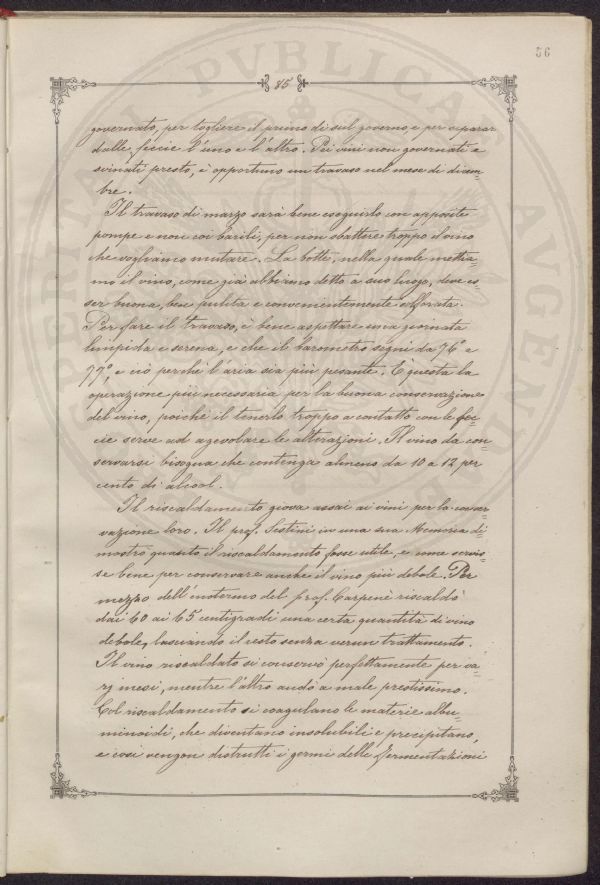 56
85
governato, per togliere il primo di sul governo, e per separar
dalle feccie l'uno e l'altro. Pei vini non governati e
svinati presto, è opportuno un travaso nel mese di dicem=
bre.
Il travaso di marzo sarà bene eseguirlo con apposite
pompe e non coi barili, per non sbattere troppo il vino
che vogliamo mutare. La botte, nella quale mettia=
mo il vino, come già abbiamo detto a suo luogo, deve es
ser buona, ben pulita e convenientemente solforata.
Per fare il travaso, è bene aspettare una giornata
limpida e serena, e che il barometro segni da 76° a
77°, e ciò perchè l'aria sia più pesante. È questa la
operazione più necessaria per la buona conservazione
del vino, poichè il tenerlo troppo a contatto con le fec=
cie serve ad agevolare le alterazioni. Il vino da con=
servarsi bisogna che contenga almeno da 10 a 12 per
cento di alcool.
Il riscaldamento giova assai ai vini per la conser=
vazione loro. Il prof. Sestini in una sua Memoria di=
mostrò quanto il riscaldamento fosse utile, e come servis=
se bene per conservare anche il vino più debole. Per
mezzo dell'enotermo del prof. Carpenè riscaldò
dai 60 ai 65 centigradi una certa quantità di vino
debole, lasciando il resto senza verun trattamento.
Il vino riscaldato si conservò perfettamente per va=
rj mesi, mentre l'altro andò a male prestissimo.
Col riscaldamento si coagulano le materie albu=
minoidi, che diventano insolubili e precipitano,
e così vengon distrutti i germi delle fermentazioni